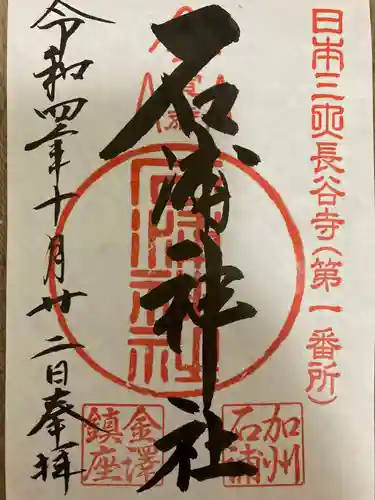 日本三所長谷寺(第一番所)
石浦神社
令和四年十月廿二日奉拝
石浦神社
加州
石浦
金澤
鎮座